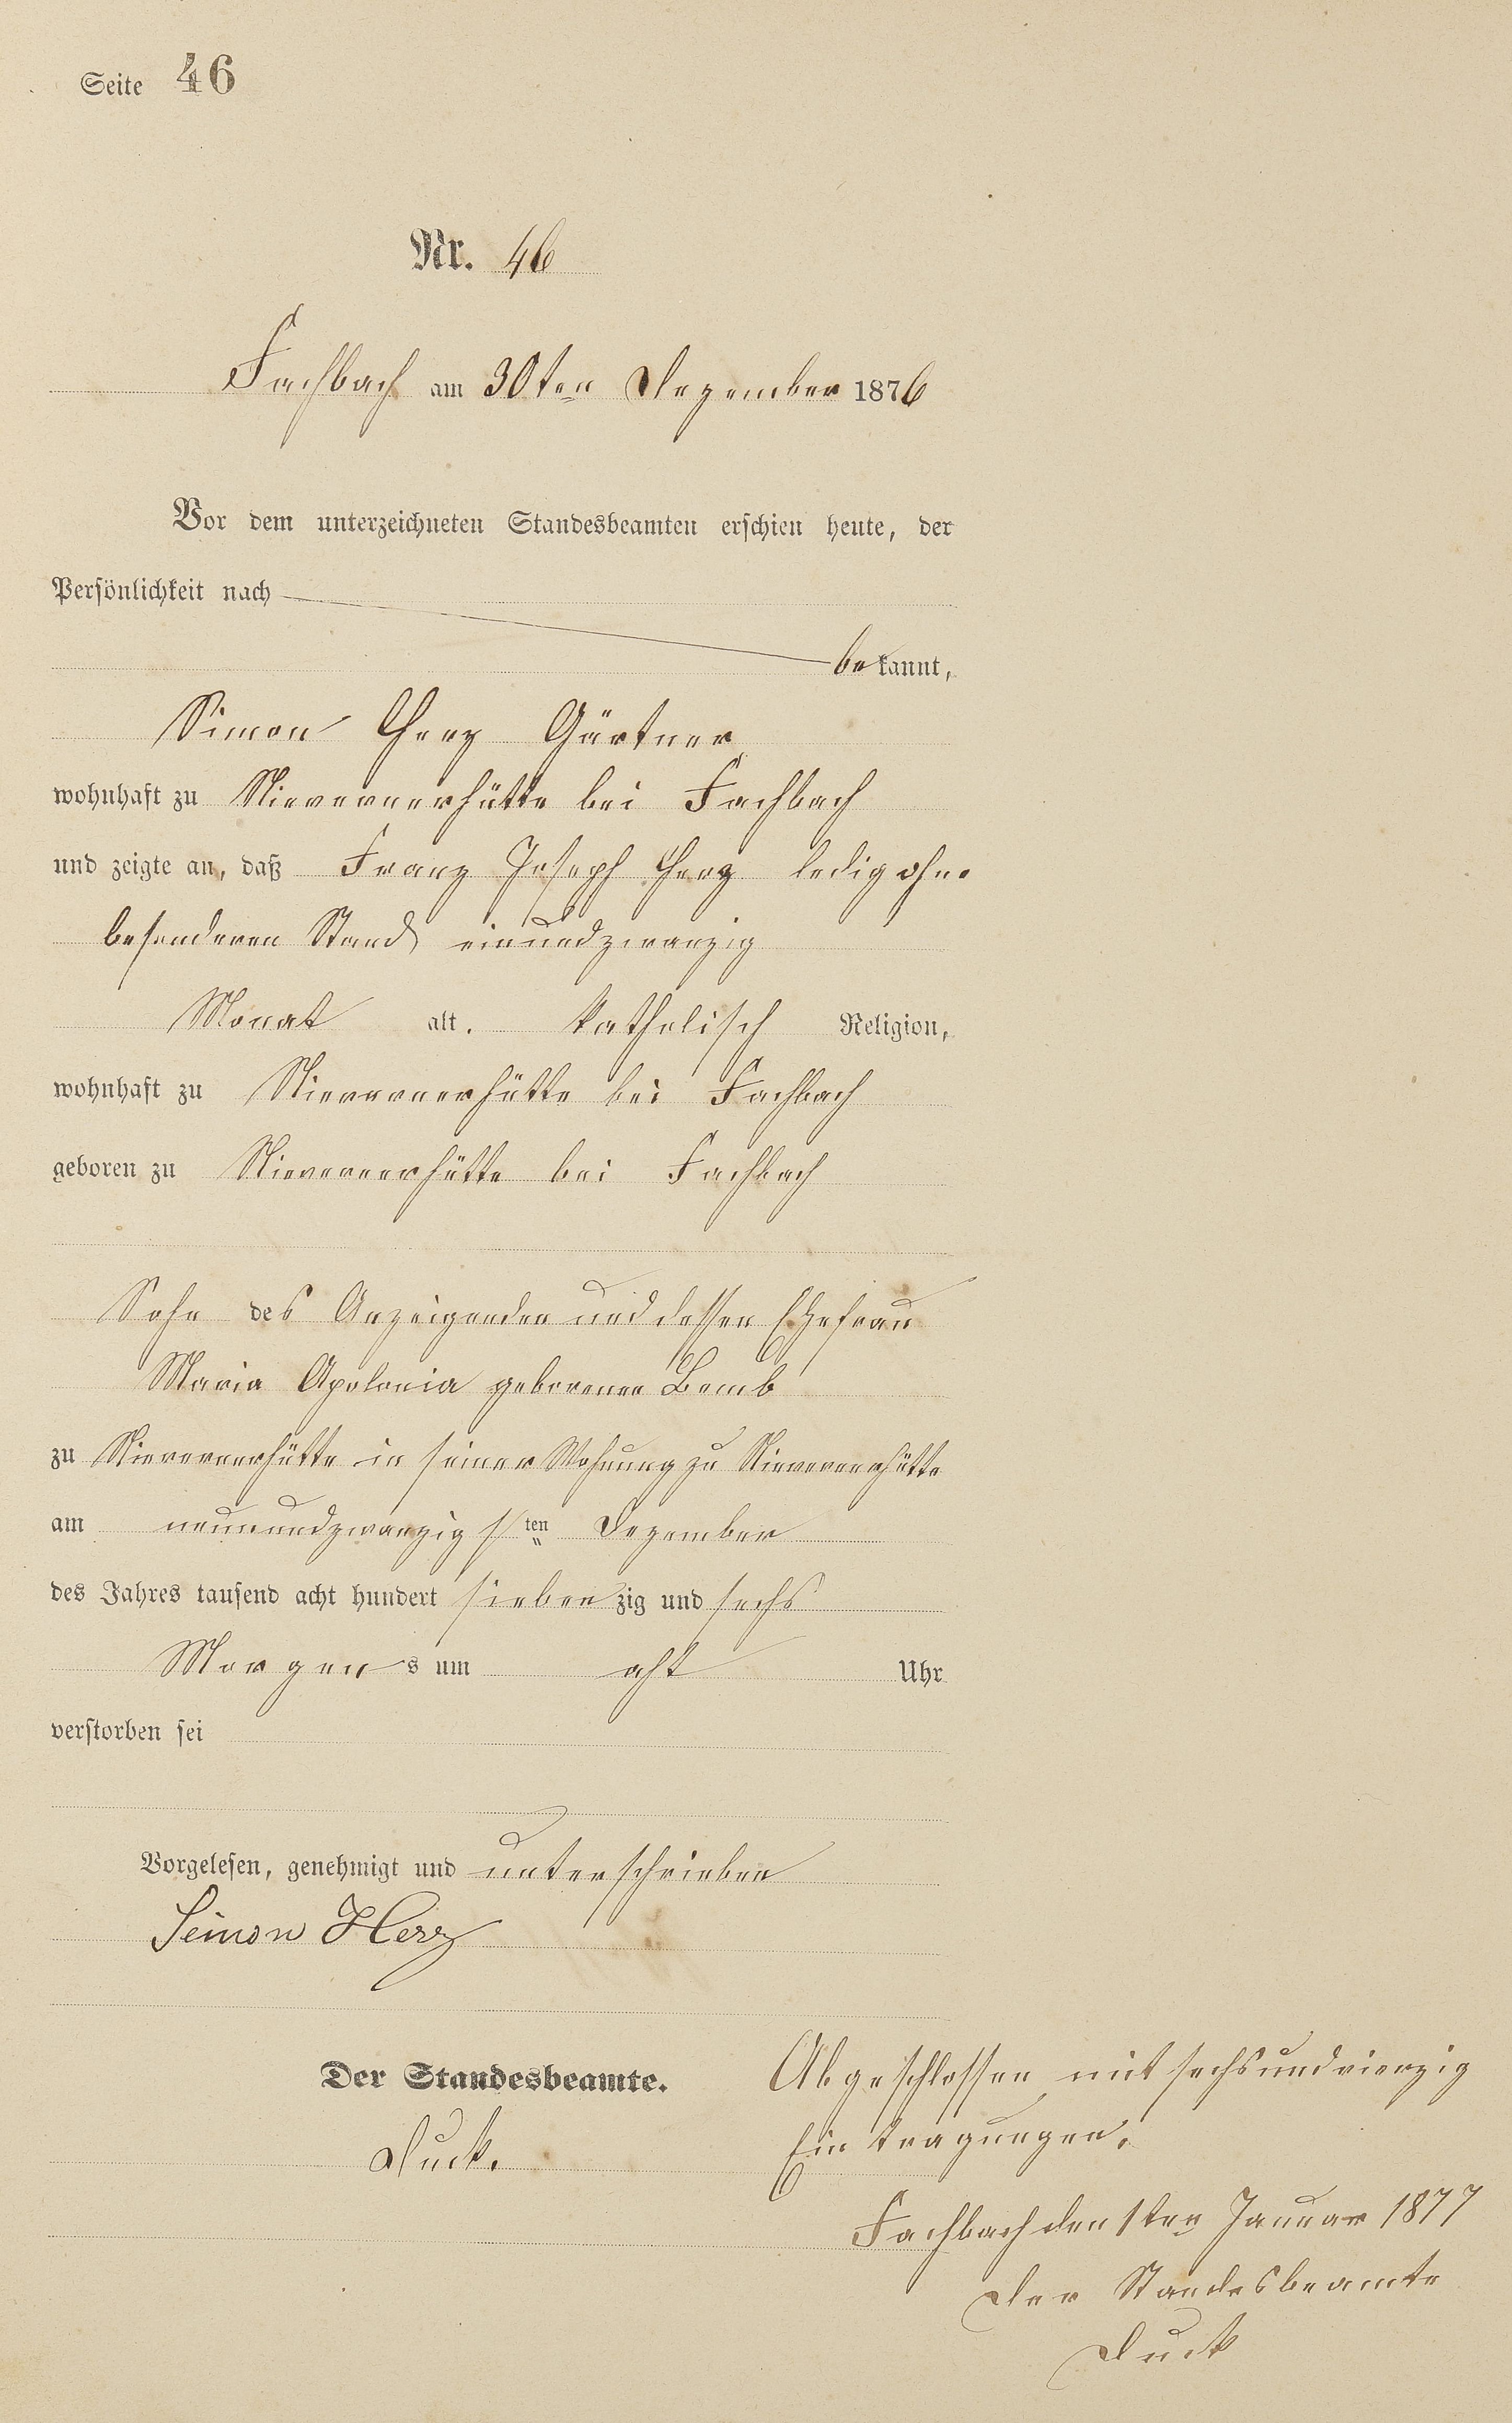 Seite 46
Nr. 46
Fachbach am 30ten Dezember 1876
Vor dem unterzeichneten Standesbeamten erschien heute, der
Persönlichkeit nach
bekannt,
Simon Herz Gärtner
wohnhaft zu Nievernerhütte bei Fachbach
und zeigte an, daß Franz Joseph Herz ledig ohne
besonderen Stand einundzwanzig
Monat alt. katholisch Religion,
wohnhaft zu Nievernerhütte bei Fachbach
geboren zu Nievernerhütte bei Fachbach
Sohn des Anzeigenden und dessen Ehefrau
Maria Apolonia geborenen Bomb
zu Nievernerhütte in seiner Wohnung zu Nievernerhütte
am neunundzwanzigsten Dezember
des Jahres tausend acht hundert siebenzig und sechs
Morgens um acht Uhr
verstorben sei
Vorgelesen, genehmigt und unterschrieben
Simon Herz
Der Standesbeamte.
Duck.
Abgeschlossen mit sechsundvierzig
Eintragungen.
Fachbach den 1ten Januar 1877
Der Standesbeamte
Duck